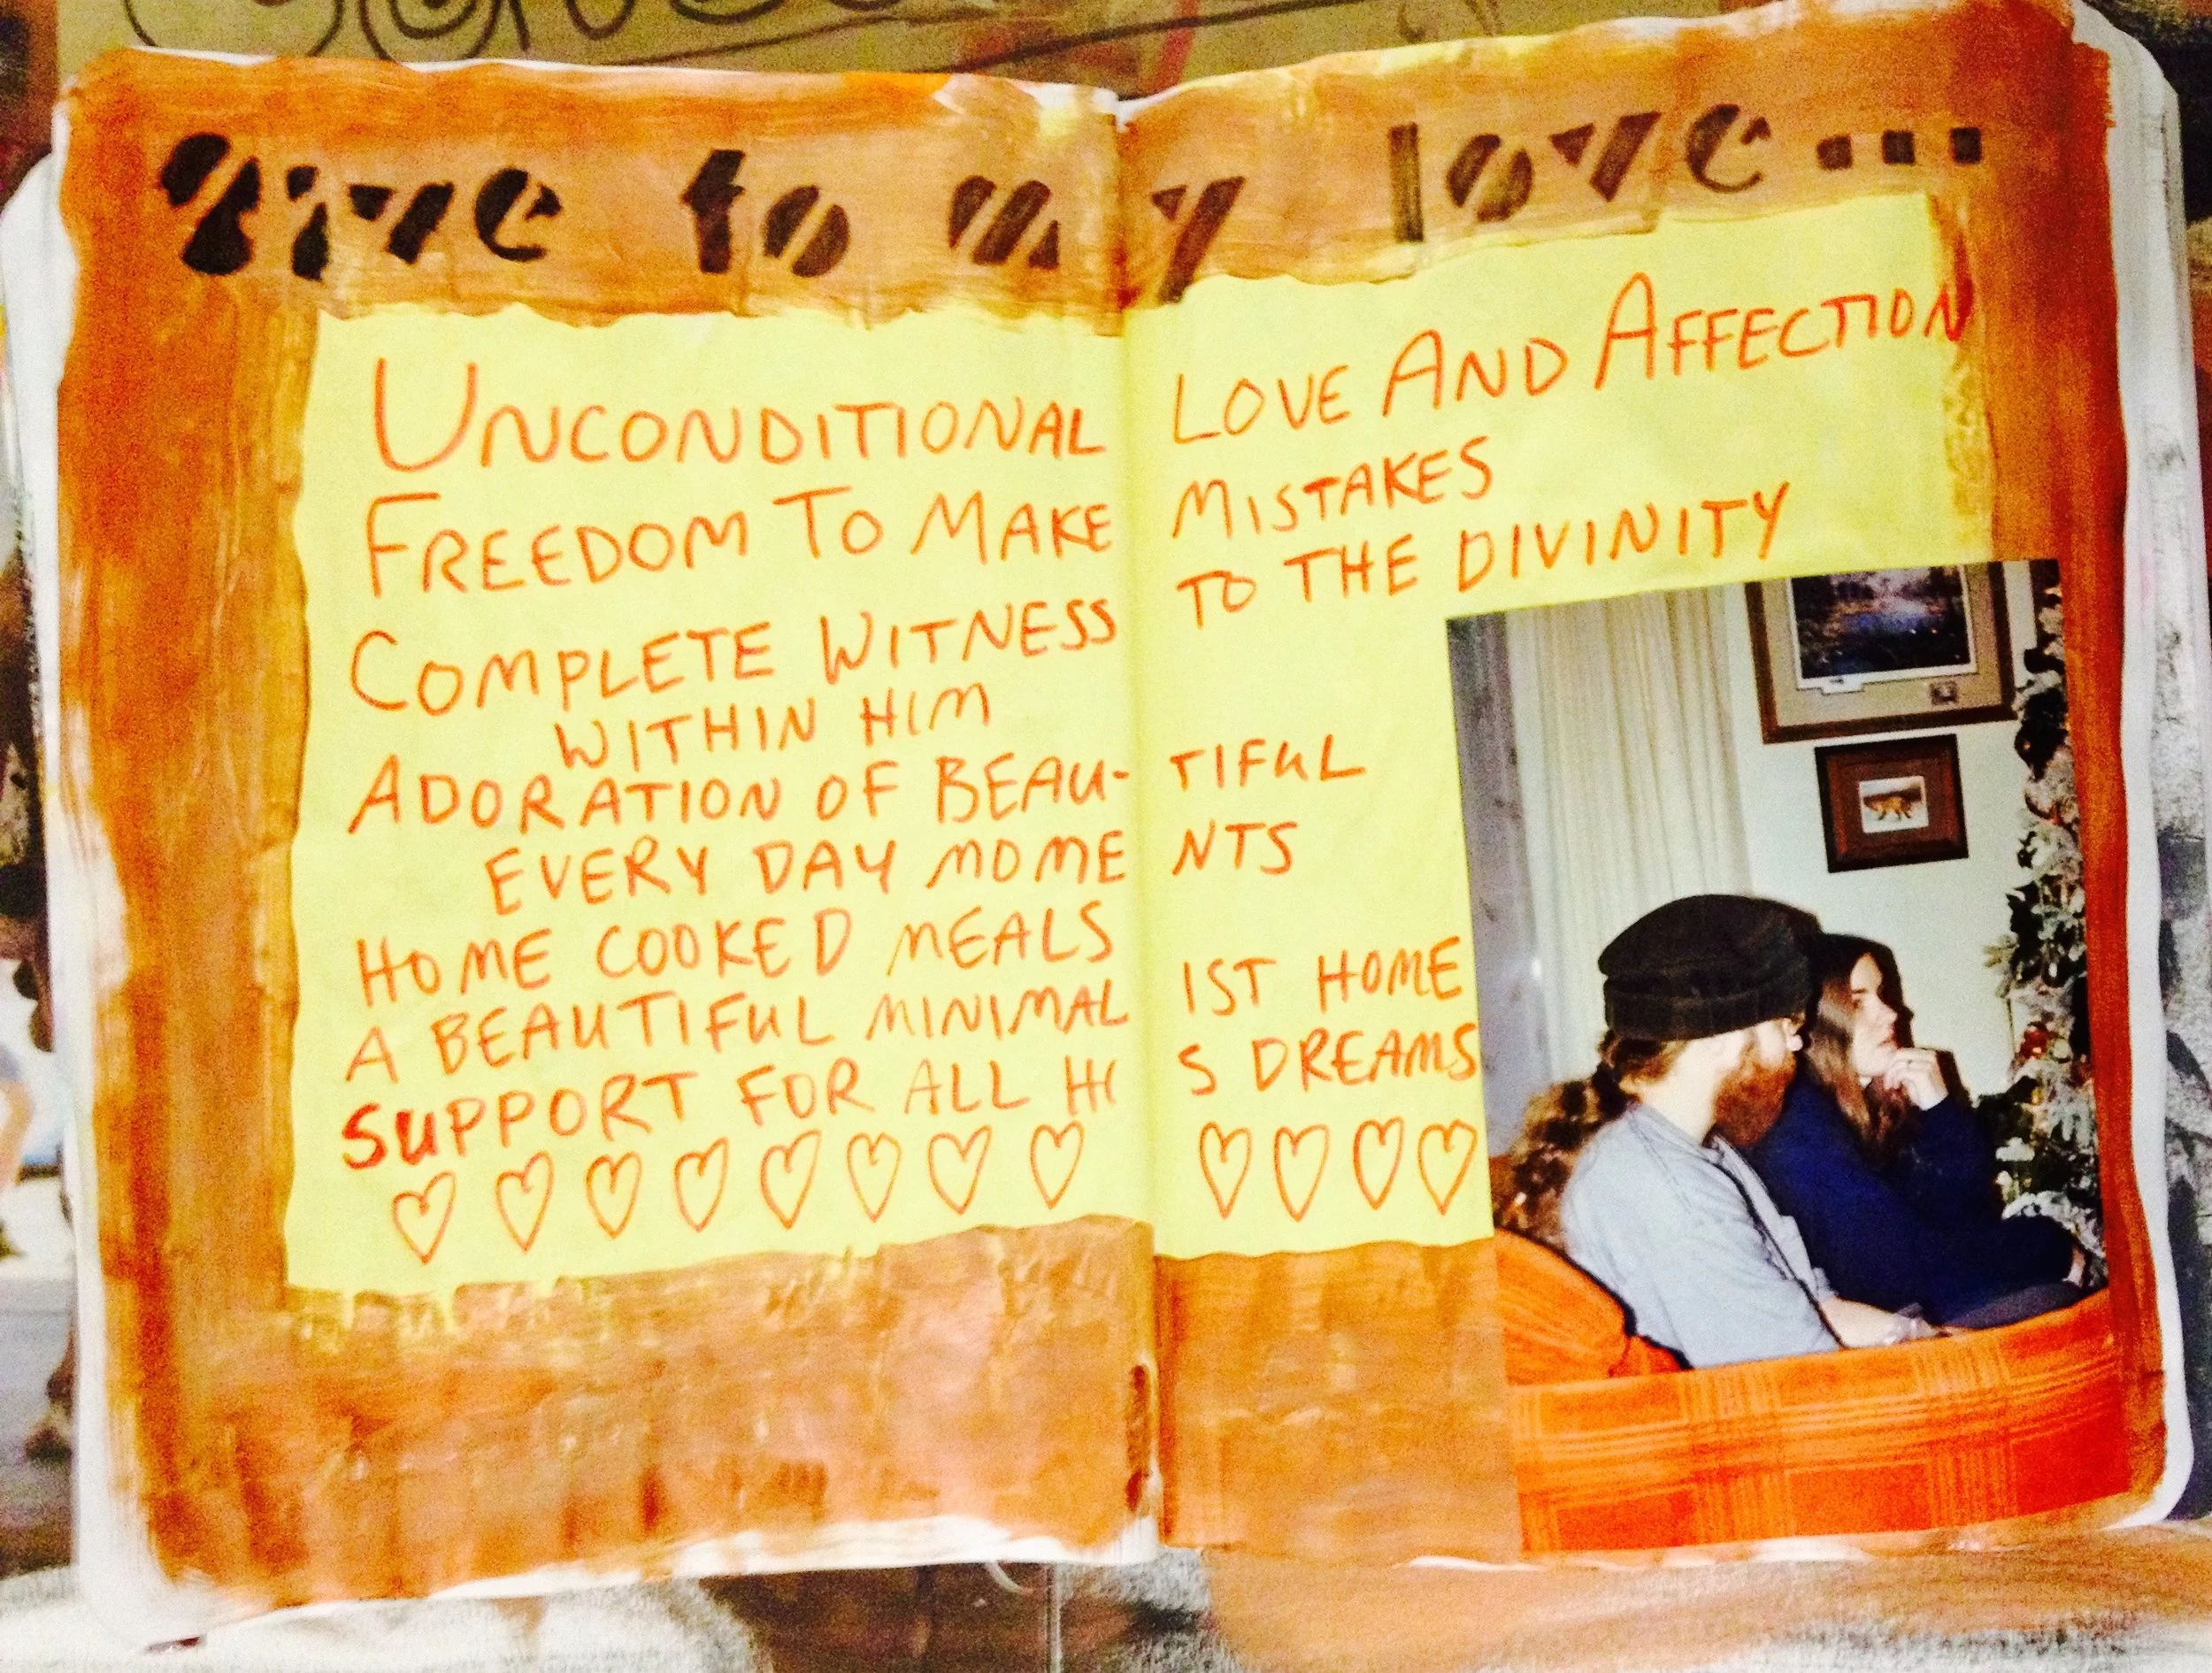 give to my love...
UNCONDITIONAL LOVE AND AFFECTION
FREEDOM TO MAKE MISTAKES
COMPLETE WITNESS TO THE DIVINITY
WITHIN HIM
ADORATION OF BEAU-TIFUL
EVERY DAY MOMENTS
HOME COOKED MEALS
A BEAUTIFUL MINIMALIST HOME
SUPPORT FOR ALL HIS DREAMS